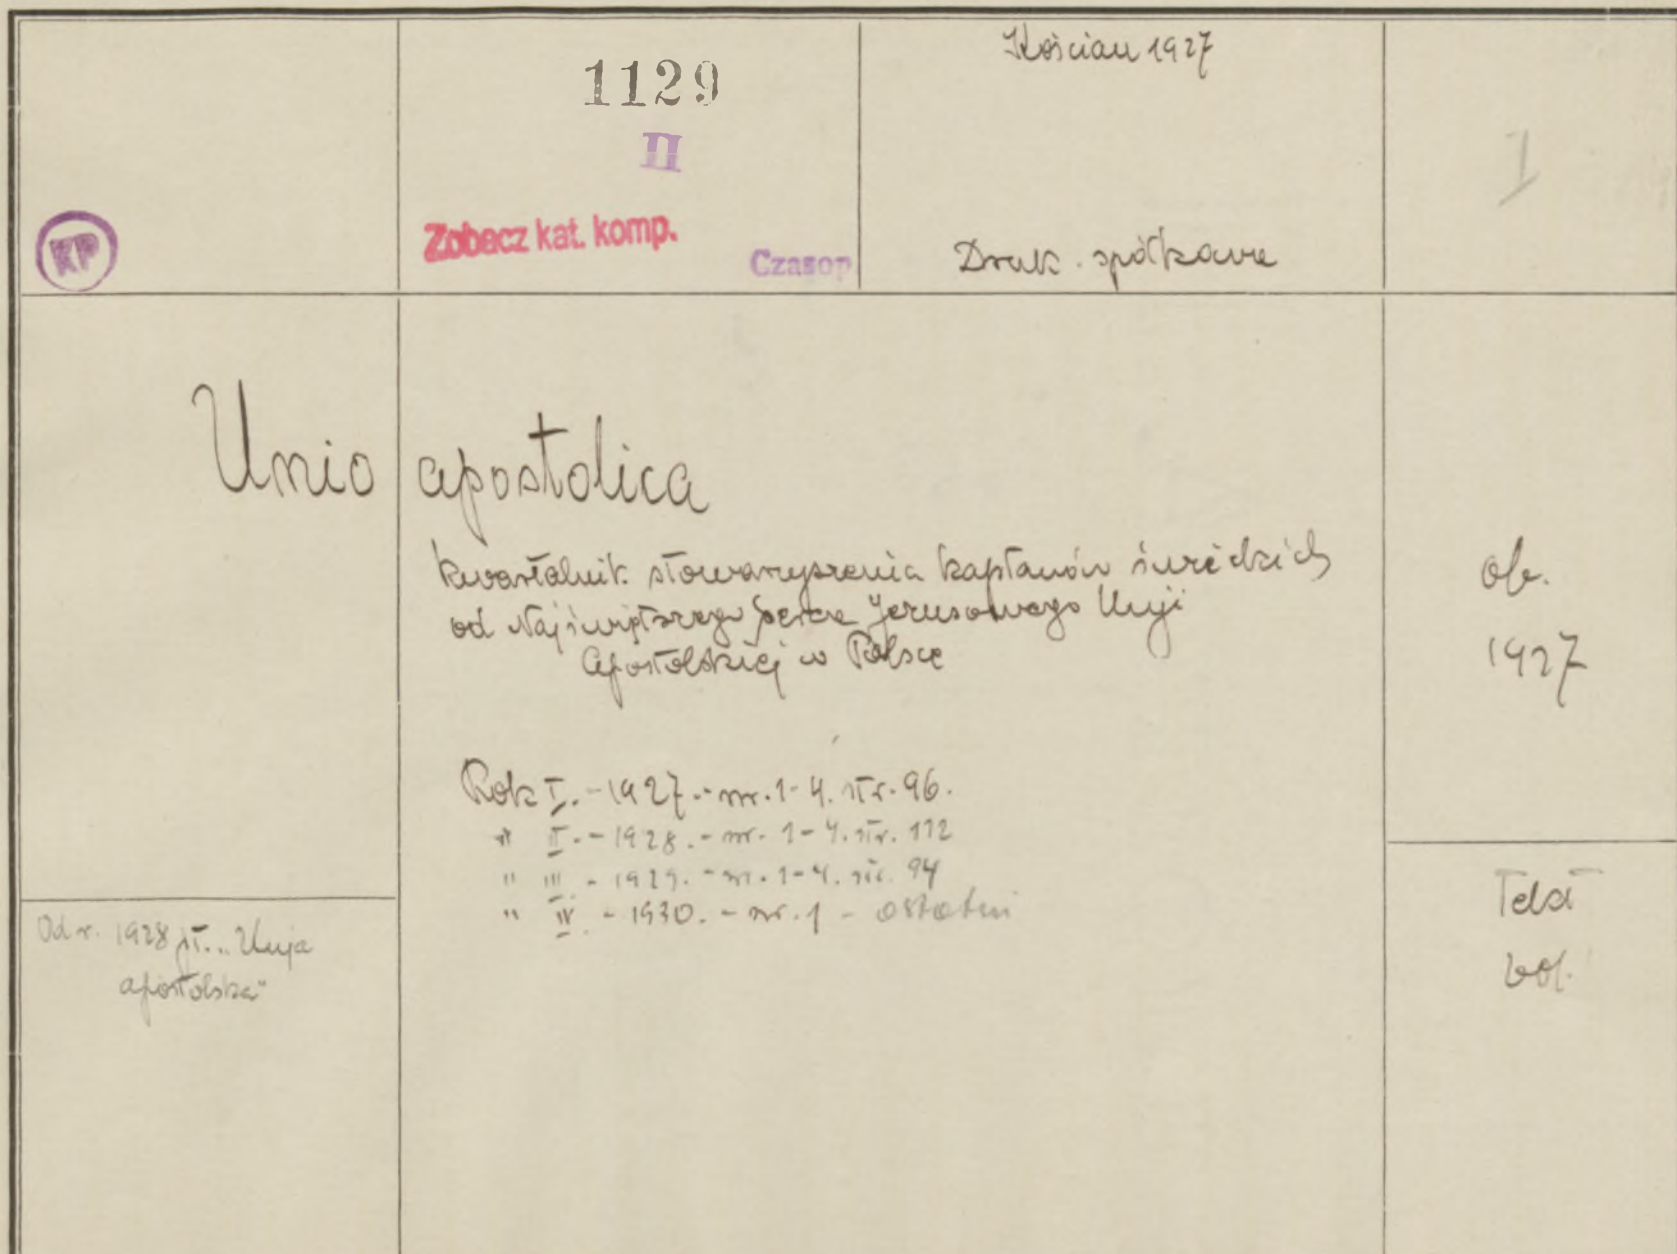 1129
II
KP
Zobacz kat. komp.
Czasop
Kościan 1927
Druk. spółkowa
I
Unio apostolica
kwartalnik stowarzyszenia kapłanów świeckich
od Najświętszego Serca Jezusowego Unji
Apostolskiej w Polsce
ob.
1927
Rok I. - 1927. - nr. 1-4. str. 96.
" II. - 1928. - nr. 1-4. str. 112
" III. - 1929. - nr. 1-4. str. 94
" IV. - 1930. - nr. 1 - ostatni
Od r. 1928 pt. „Unja
apostolska"
Tekst
pol.